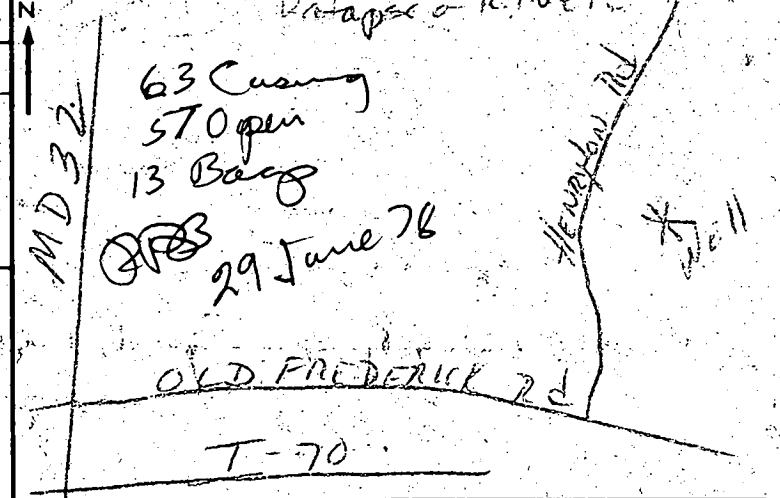 N
Patapsco River
MD 32
63 Casing
57 Open
13 Bags
29 June 78
HENRYTON Rd
Well
OLD FREDERICK Rd
I-70